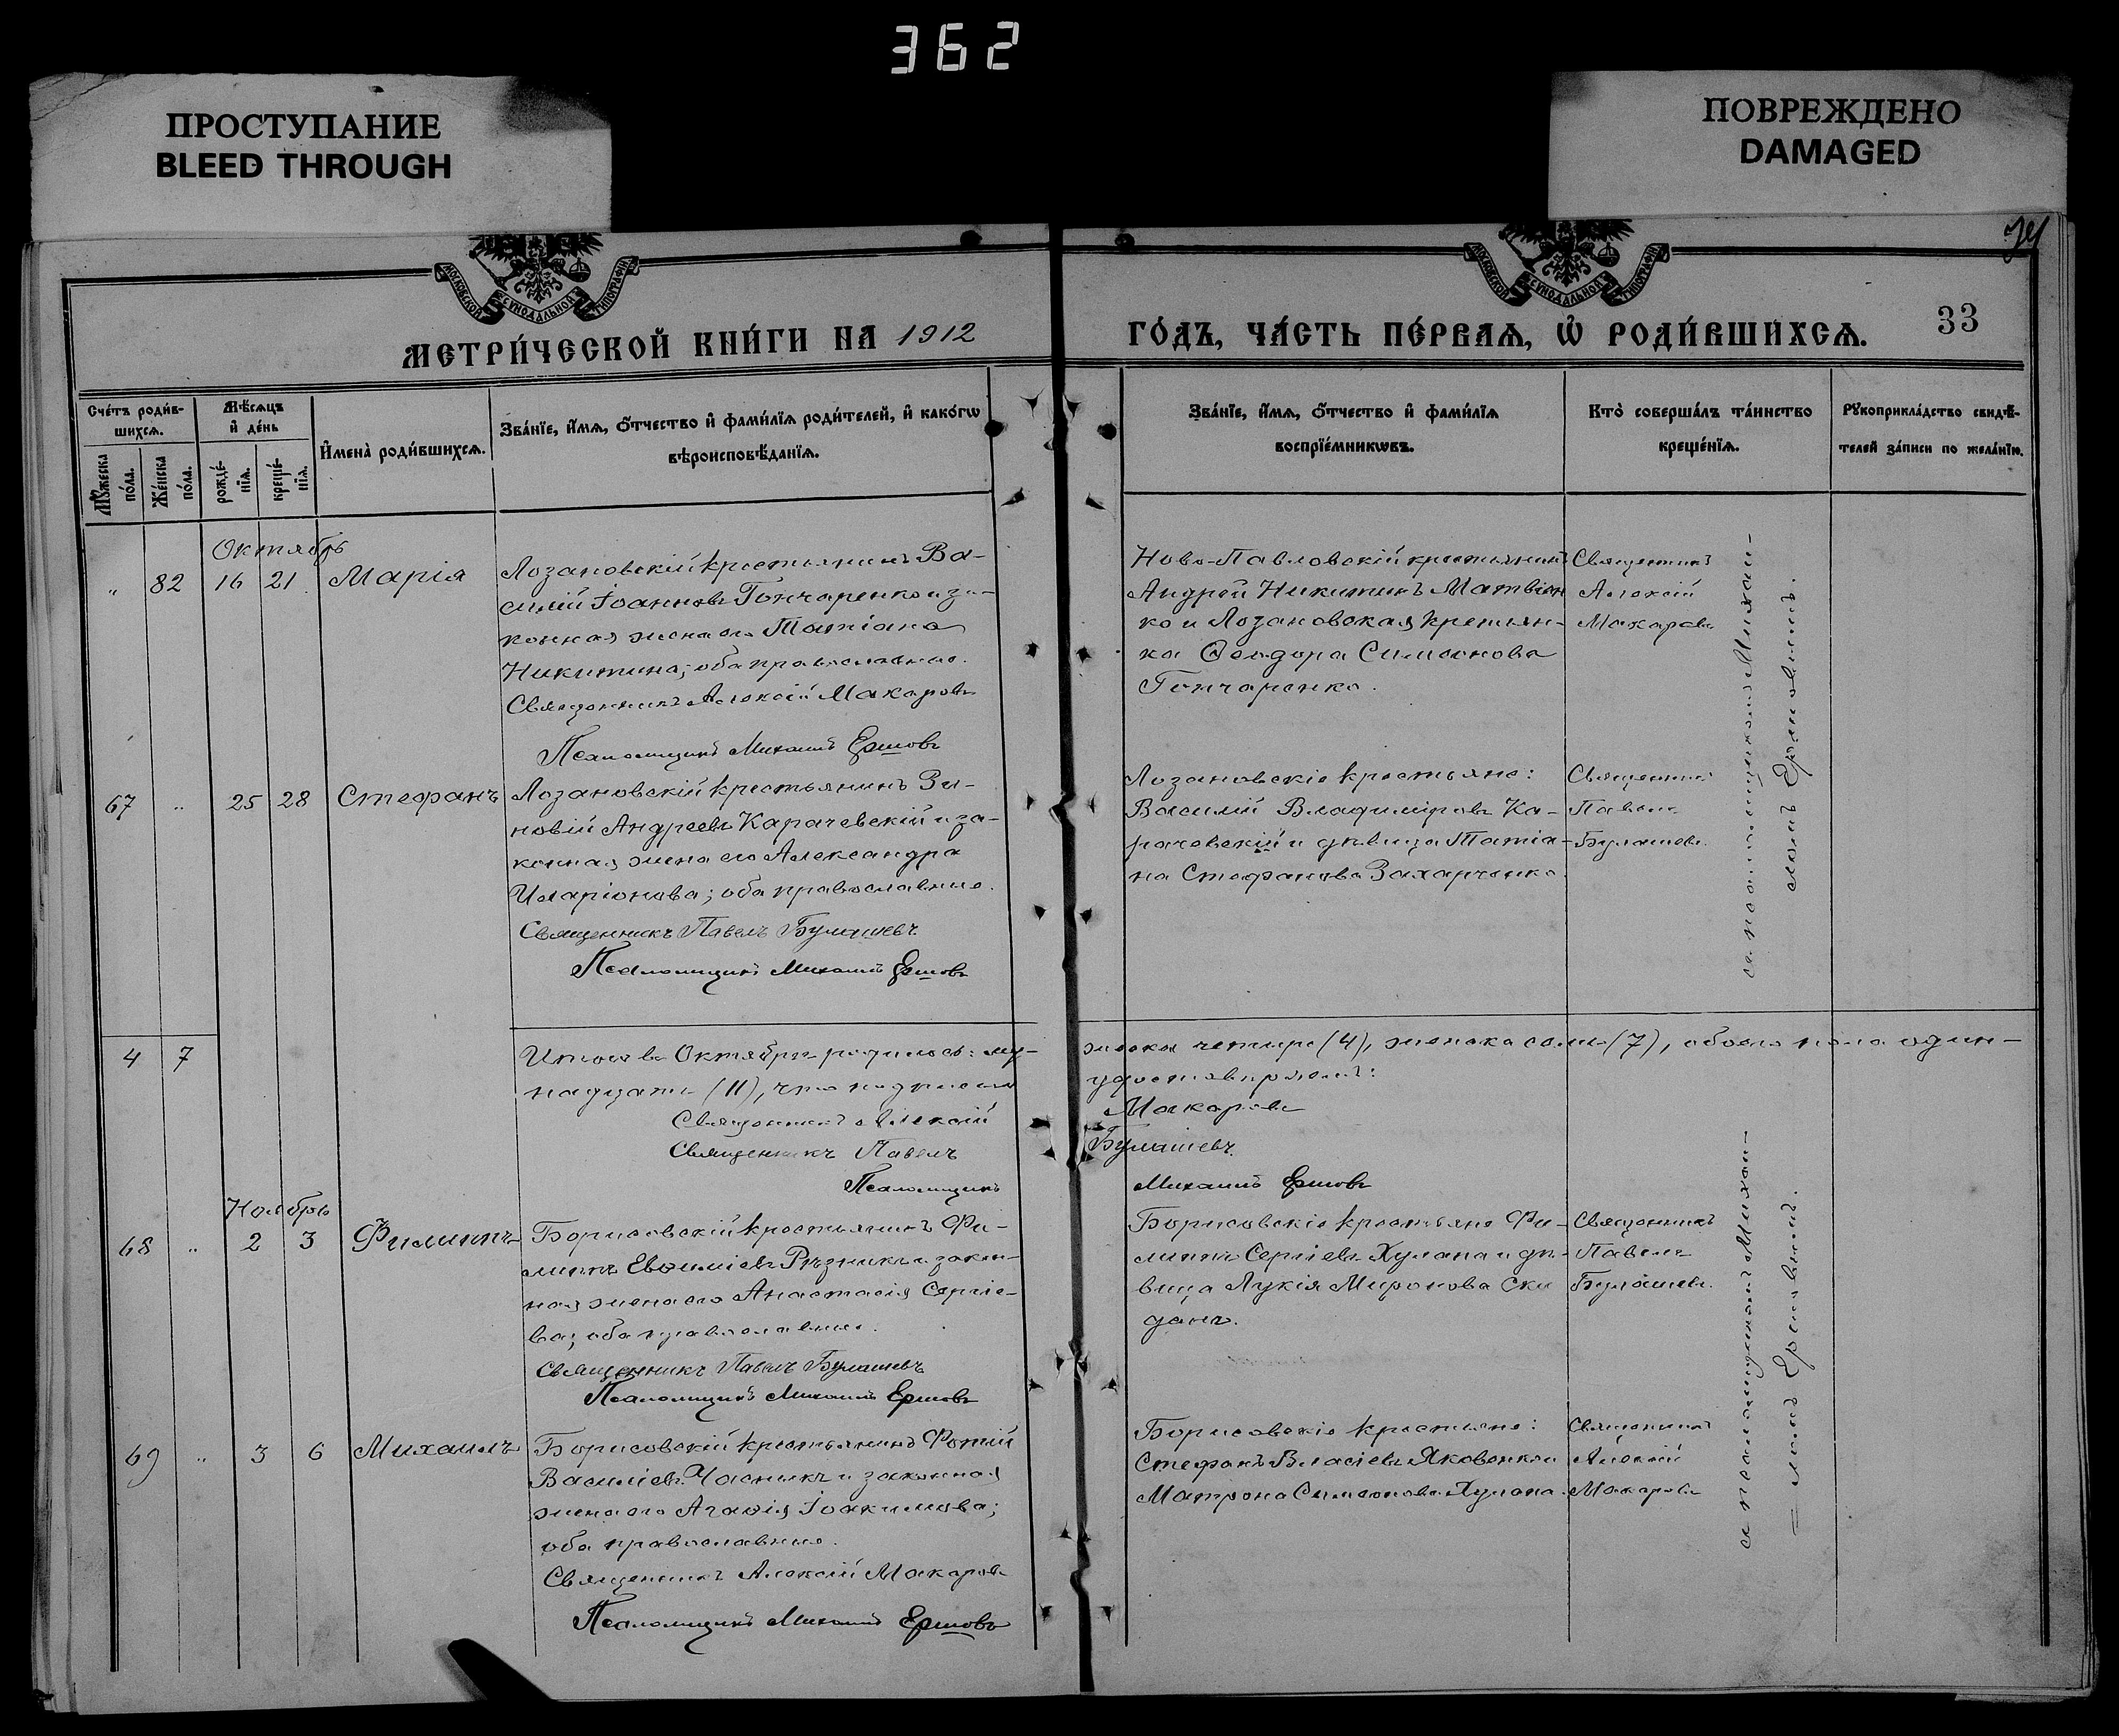 362
ПРОСТУПАНИЕ
BLEED THROUGH
ПОВРЕЖДЕНО
DAMAGED
МОСКОВСКОЙ СѴНОДАЛЬНОЙ ТИПОГРАФІИ
МОСКОВСКОЙ СѴНОДАЛЬНОЙ ТИПОГРАФІИ
МЕТРИ́ЧЕСКОЙ КНИ́ГИ НА 1912
ГО́ДЪ, ЧА́СТЬ ПЕ́РВАѦ, Ѡ҆ РОДИ́ВШИХСѦ.
33
Сче́тъ роди́в-
шихсѧ.
Мꙋ́жеска по́ла.
Же́нска по́ла.
Мѣ́сѧцъ
и҆ де́нь
рожде́-
нїѧ.
креще́-
нїѧ.
И҆мена̀ роди́вшихсѧ.
Зва́нїе, и҆́мѧ, ѻ҆́тчество и҆ фами́лїѧ роди́телей, и҆ како́гѡ
вѣроисповѣ́данїѧ.
Зва́нїе, и҆́мѧ, ѻ҆́тчество и҆ фами́лїѧ
воспрїе́мникѡвъ.
Кто̀ соверша́лъ та́инство
креще́нїѧ.
Рꙋкоприкла́дство свидѣ́-
телей за́писи по жела́нїю.
Октябрь
" 82 16 21 Марія
Лозановскій крестьянинъ Ва-
силій Іоанновъ Гончаренко и за-
конная жена его Татіана
Никитина; оба православные.
Священникъ Алексій Макаровъ
Псаломщикъ Михаилъ Ершовъ
Ново-Павловскій крестьянинъ
Андрей Никитинъ Матвіен
ко и Лозановская крестьян-
ка Ѳеодора Симеонова
Гончаренко.
Священникъ
Алексій
Макаровъ
съ псаломщикомъ Михаи-
ломъ Ершовымъ.
67 " 25 28 Стефанъ
Лозановскій крестьянинъ Зи-
новій Андреевъ Карачевскій и за-
конная жена его Александра
Иларіонова; оба православные.
Священникъ Павелъ Булашевъ.
Псаломщикъ Михаилъ Ершовъ
Лозановскіе крестьяне:
Василій Владиміровъ Ка-
рачевскій и дѣвица Татіа-
на Стефанова Захарченко.
Священникъ
Павелъ
Булашевъ.
4 7
Итого въ Октябрѣ родилось: му-
жеска четыре (4), женска семь (7), обоего пола один-
надцать (11), что подписомъ
удостовѣряемъ:
Священникъ Алексій Макаровъ
Священникъ Павелъ Булашевъ.
Псаломщикъ Михаилъ Ершовъ
Ноябрь
68 " 2 3 Филиппъ
Борисовскій крестьянинъ Фи-
липпъ Евѳиміевъ Рѣзникъ и закон-
ная жена его Анастасія Сергіе-
ва; оба православные.
Священникъ Павелъ Булашевъ
Псаломщикъ Михаилъ Ершовъ
Борисовскіе крестьяне Фи-
липпъ Сергіевъ Хулапа и дѣ-
вица Лукія Миронова Ски
данъ.
Священникъ
Павелъ
Булашевъ.
съ псаломщикомъ Михаи-
ломъ Ершовымъ.
69 " 3 6 Михаилъ
Борисовскій крестьянинъ Фотій
Василіевъ Часныкъ и законная
жена его Агаѳія Іоакимова;
оба православные.
Священникъ Алексій Макаровъ
Псаломщикъ Михаилъ Ершовъ
Борисовскіе крестьяне:
Стефанъ Власіевъ Яковенко и
Матрона Симеонова Хулапа.
Священникъ
Алексій
Макаровъ